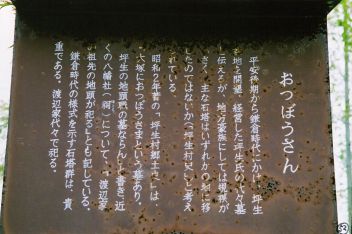 おつぼうさん
平安後期から鎌倉時代にかけ、坪生
を開墾、経営した坪生氏の代々墓
と伝えるが、地方豪族にしては規模が
主な石塔はいずれか
したのではないか「坪生村史」と考え
られている
昭和2年春の「坪生村郷土史」は
大塚におつぼうさまという墓あり、
坪生の地頭職の墓ならん」と書き、近
くの八幡社(祠)について、「渡辺家
祖先の地頭が祀る」とも記している。
鎌倉時代の様式を示す石塔群は、貴
重である。渡辺家代々で祀る。